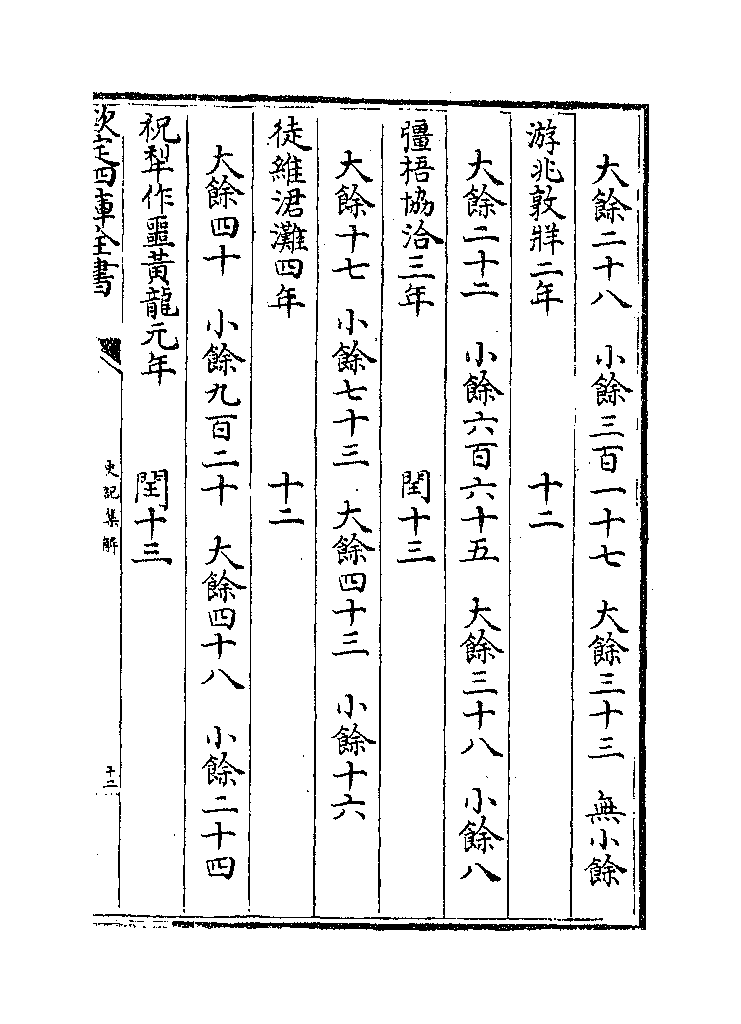 大餘二十八　小餘三百一十七　大餘三十三　無小餘
游兆敦牂二年　十二
大餘二十二　小餘六百六十五　大餘三十八　小餘八
彊梧協洽三年　閏十三
大餘十七　小餘七十三　大餘四十三　小餘十六
徒維涒灘四年　十二
大餘四十　小餘九百二十　大餘四十八　小餘二十四
祝犂作噩黃龍元年　閏十三
欽定四庫全書
史記集解
十二